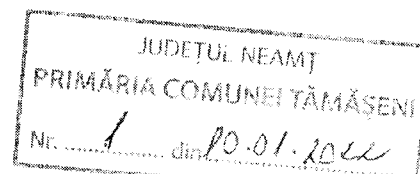 JUDEȚUL NEAMȚ
PRIMĂRIA COMUNEI TĂMĂȘENI
Nr. 1 din 10.01.2022